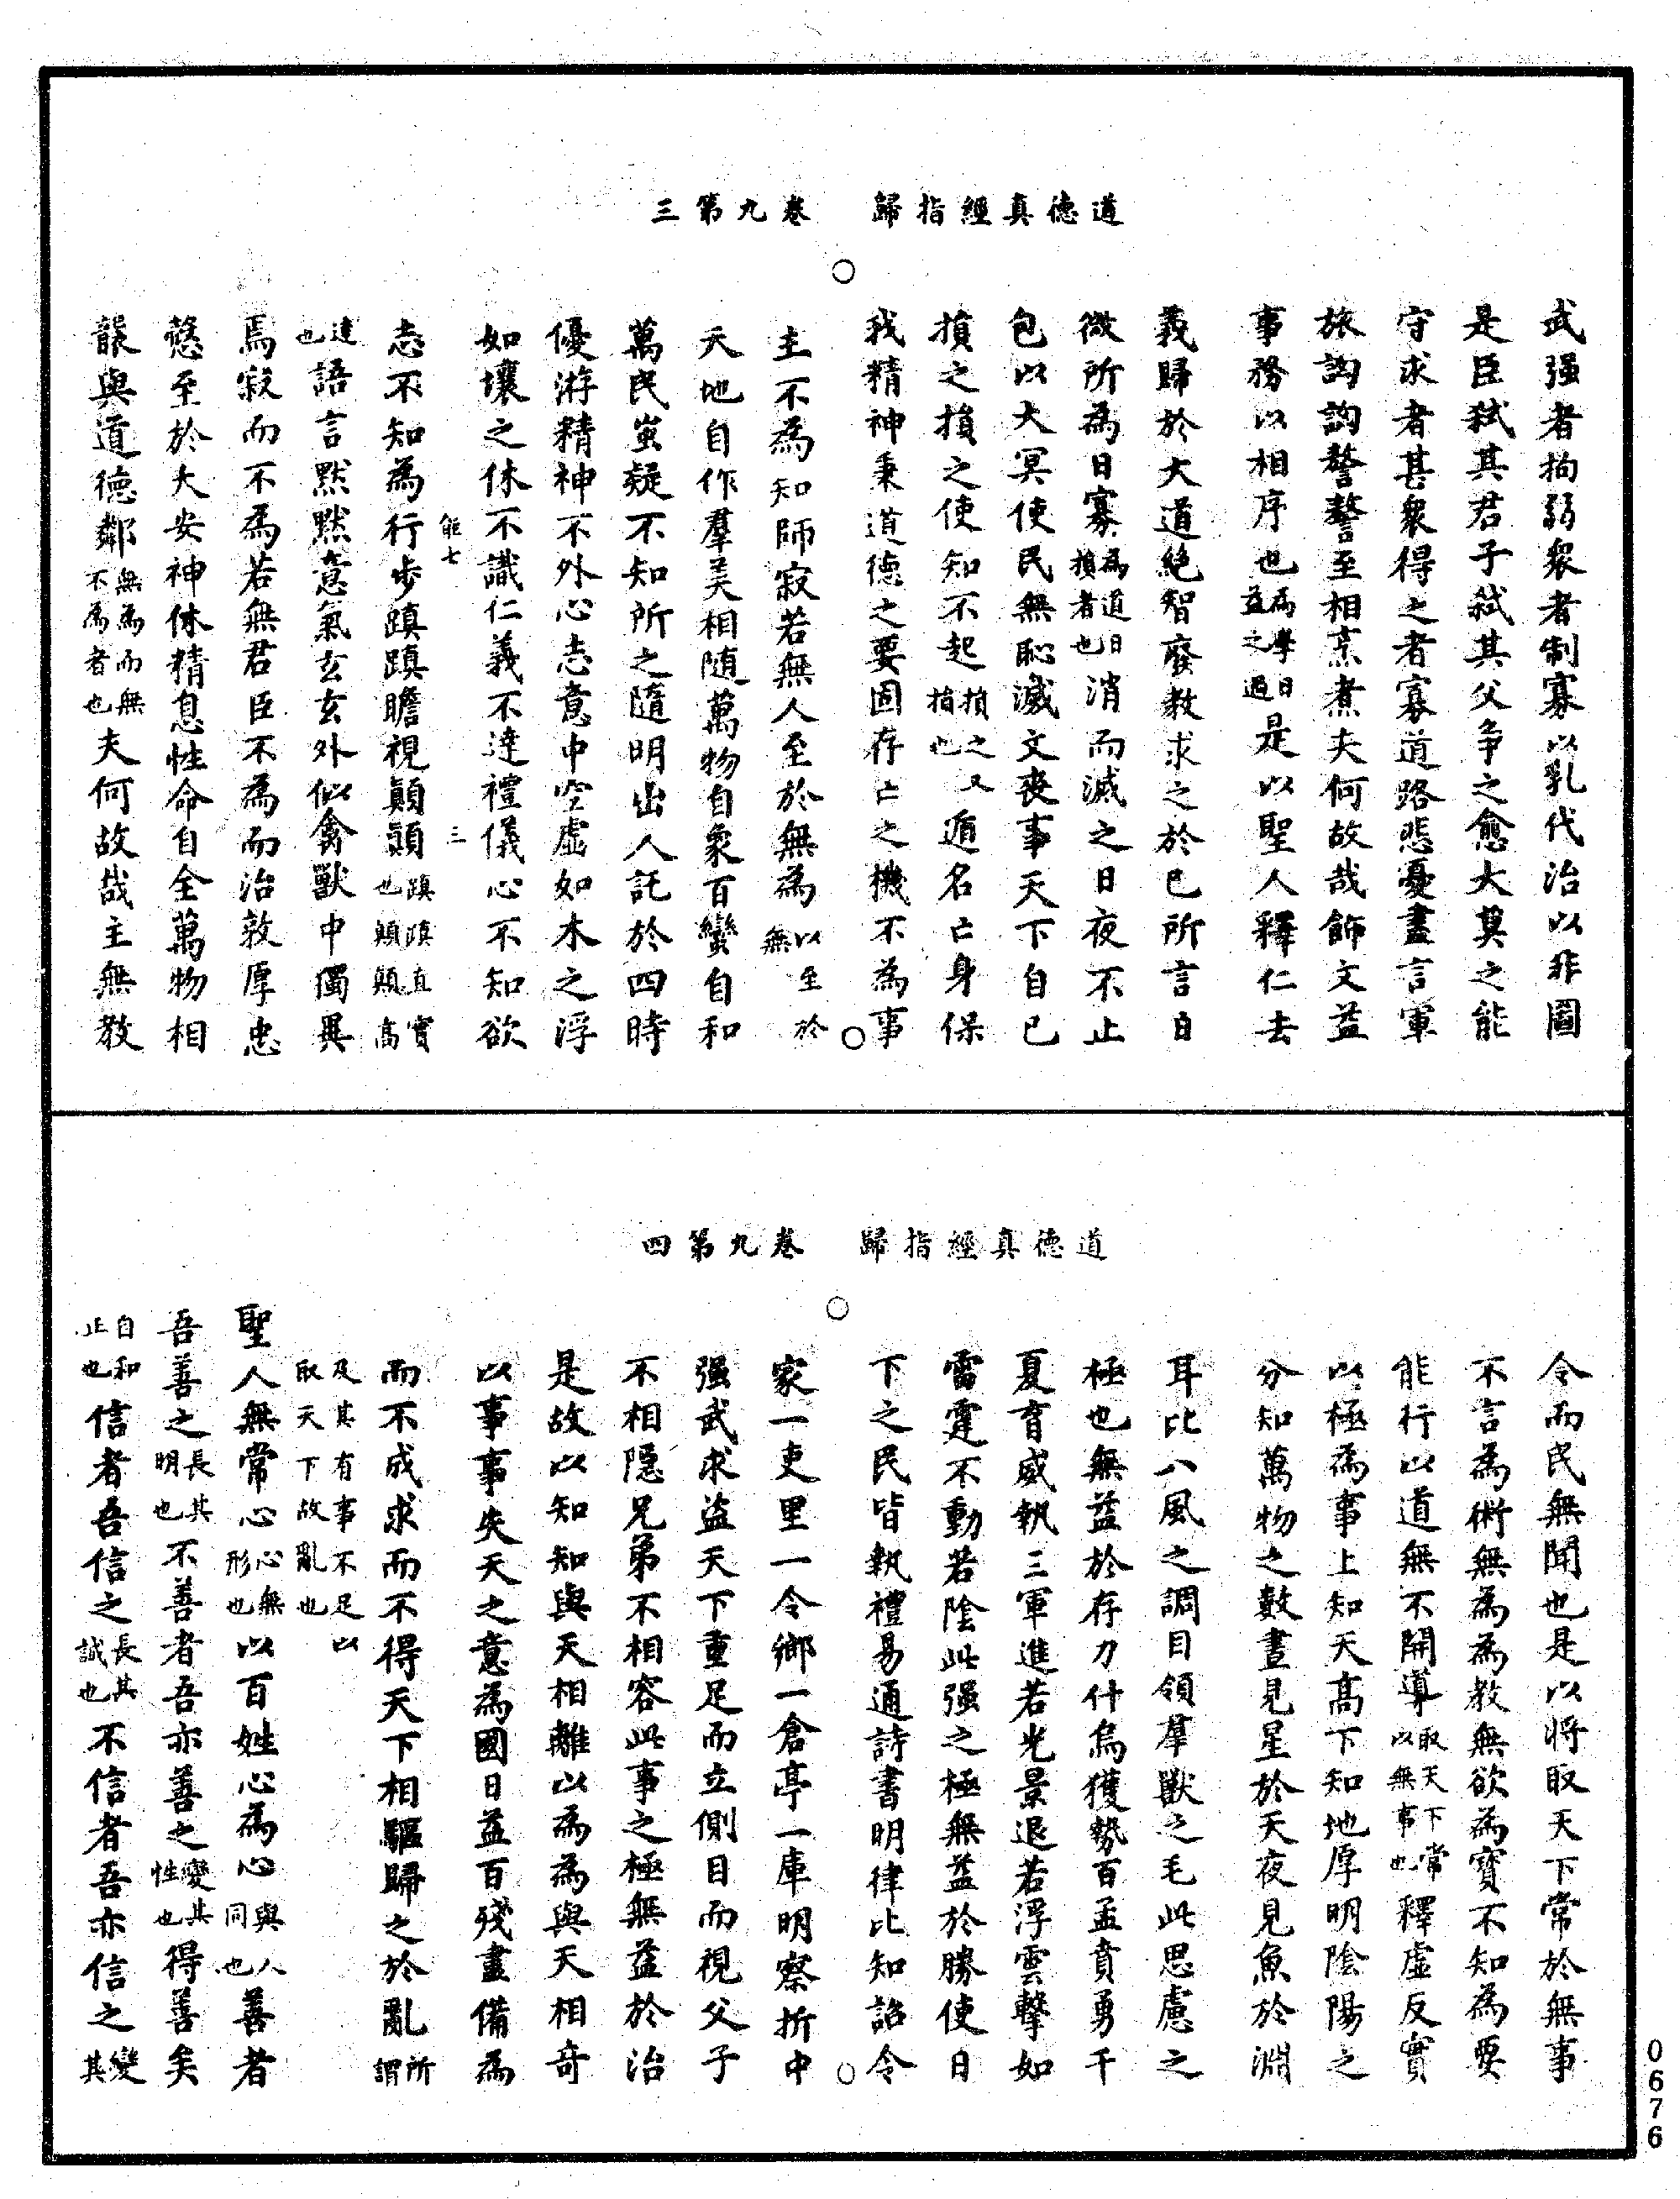 道德真經指歸　卷九第三
武强者拘弱衆者制寡以亂代治以非圖
是臣弑其君子弑其父爭之愈大莫之能
守求者甚衆得之者寡道路悲憂盡言軍
旅訽訽謷謷至相烹煮夫何故哉飾文益
事務以相序也為學日益之過是以聖人釋仁去
義歸於大道絕智廢教求之於已所言日
微所為日寡為道日損者也消而滅之日夜不止
包以大冥使民無恥滅文喪事天下自已
損之損之使知不起損之又損也遁名亡身保
我精神秉道德之要固存亡之機不為事
主不為知師寂若無人至於無為以至於無
天地自作羣美相隨萬物自象百蠻自和
萬民蚩疑不知所之隨明出入託於四時
優游精神不外心志意中空虛如木之浮
如壤之休不識仁義不達禮儀心不知欲
能七　三
志不知為行步蹎蹎瞻視顚顚蹎蹎直實也顚顚高
達也語言默默意氣玄玄外似禽獸中獨異
焉寂而不為若無君臣不為而治敦厚忠
愨至於大安神休精息性命自全萬物相
襲與道德鄰無為而無不為者也夫何故哉主無教
道德真經指歸　卷九第四
令而民無聞也是以將取天下常於無事
不言為術無為為教無欲為寶不知為要
能行以道無不開導取天下常以無事也釋虛反實
以極為事上知天高下知地厚明陰陽之
分知萬物之數晝見星於天夜見魚於淵
耳比八風之調目領羣獸之毛此思慮之
極也無益於存力什烏獲勢百孟賁勇千
夏育威執三軍進若光景退若浮雲擊如
雷霆不動若陰此强之極無益於勝使日
下之民皆執禮易通詩書明律比知詔令
家一吏里一令鄉一倉亭一庫明察折中
强武求盜天下重足而立側目而視父子
不相隱兄弟不相容此事之極無益於治
是故以知知與天相離以為為與天相奇
以事事失天之意為國日益百殘盡備為
而不成求而不得天下相驅歸之於亂所謂
及其有事不足以取天下故亂也
聖人無常心心無形也以百姓心為心與人同也善者
吾善之長其明也不善者吾亦善之變其性也得善矣
自和正也信者吾信之長其誠也不信者吾亦信之變其
0676